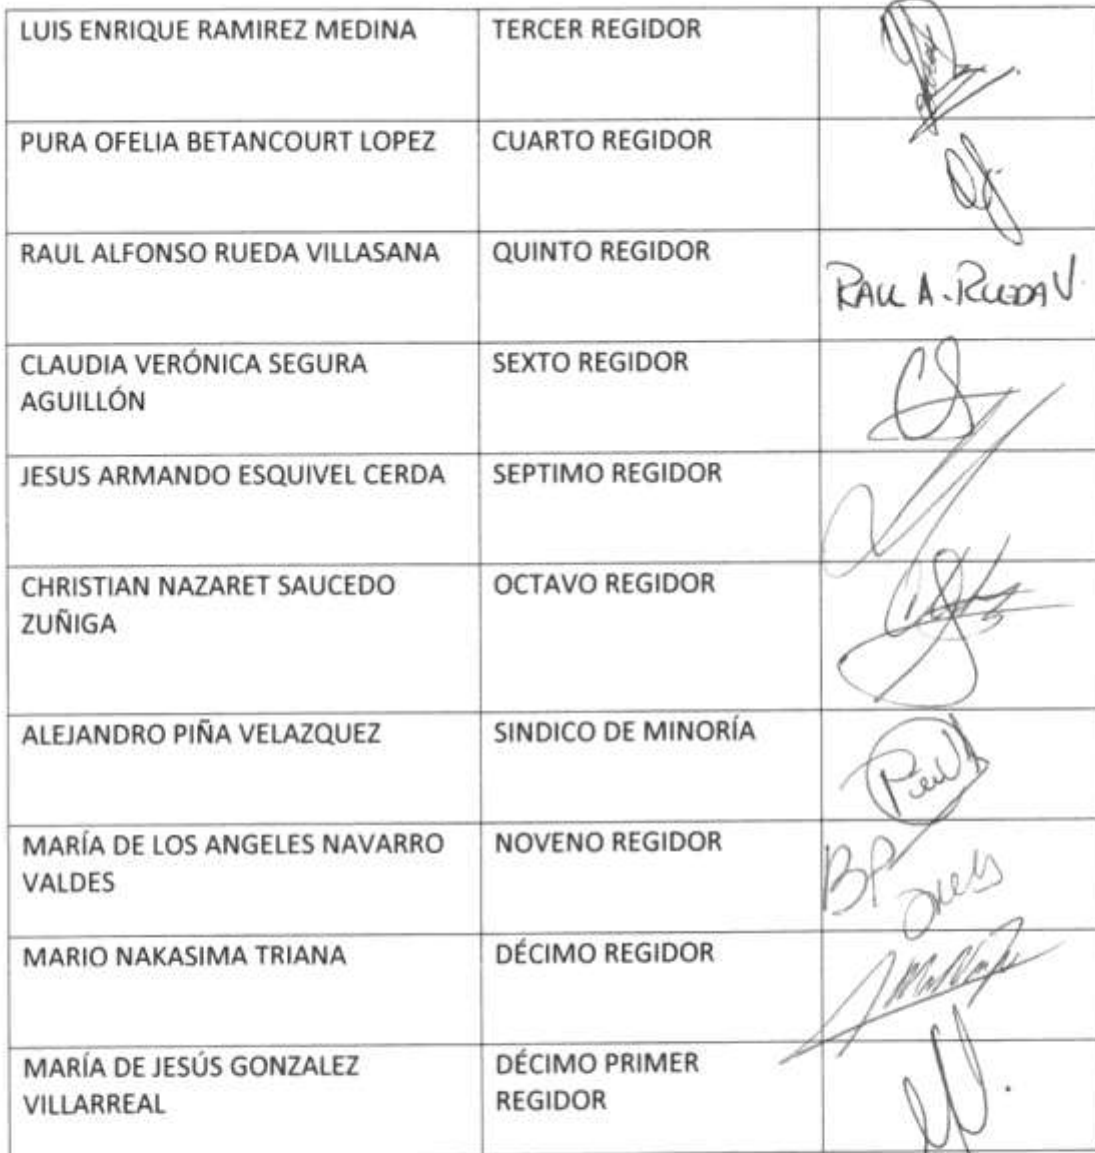 LUIS ENRIQUE RAMIREZ MEDINA TERCER REGIDOR
PURA OFELIA BETANCOURT LOPEZ CUARTO REGIDOR
RAUL ALFONSO RUEDA VILLASANA QUINTO REGIDOR
RAUL A. RUEDA V.
CLAUDIA VERÓNICA SEGURA SEXTO REGIDOR
AGUILLÓN
JESUS ARMANDO ESQUIVEL CERDA SEPTIMO REGIDOR
CHRISTIAN NAZARET SAUCEDO OCTAVO REGIDOR
ZUÑIGA
ALEJANDRO PIÑA VELAZQUEZ SINDICO DE MINORÍA
MARÍA DE LOS ANGELES NAVARRO NOVENO REGIDOR
VALDES
MARIO NAKASIMA TRIANA DÉCIMO REGIDOR
MARÍA DE JESÚS GONZALEZ DÉCIMO PRIMER
VILLARREAL REGIDOR